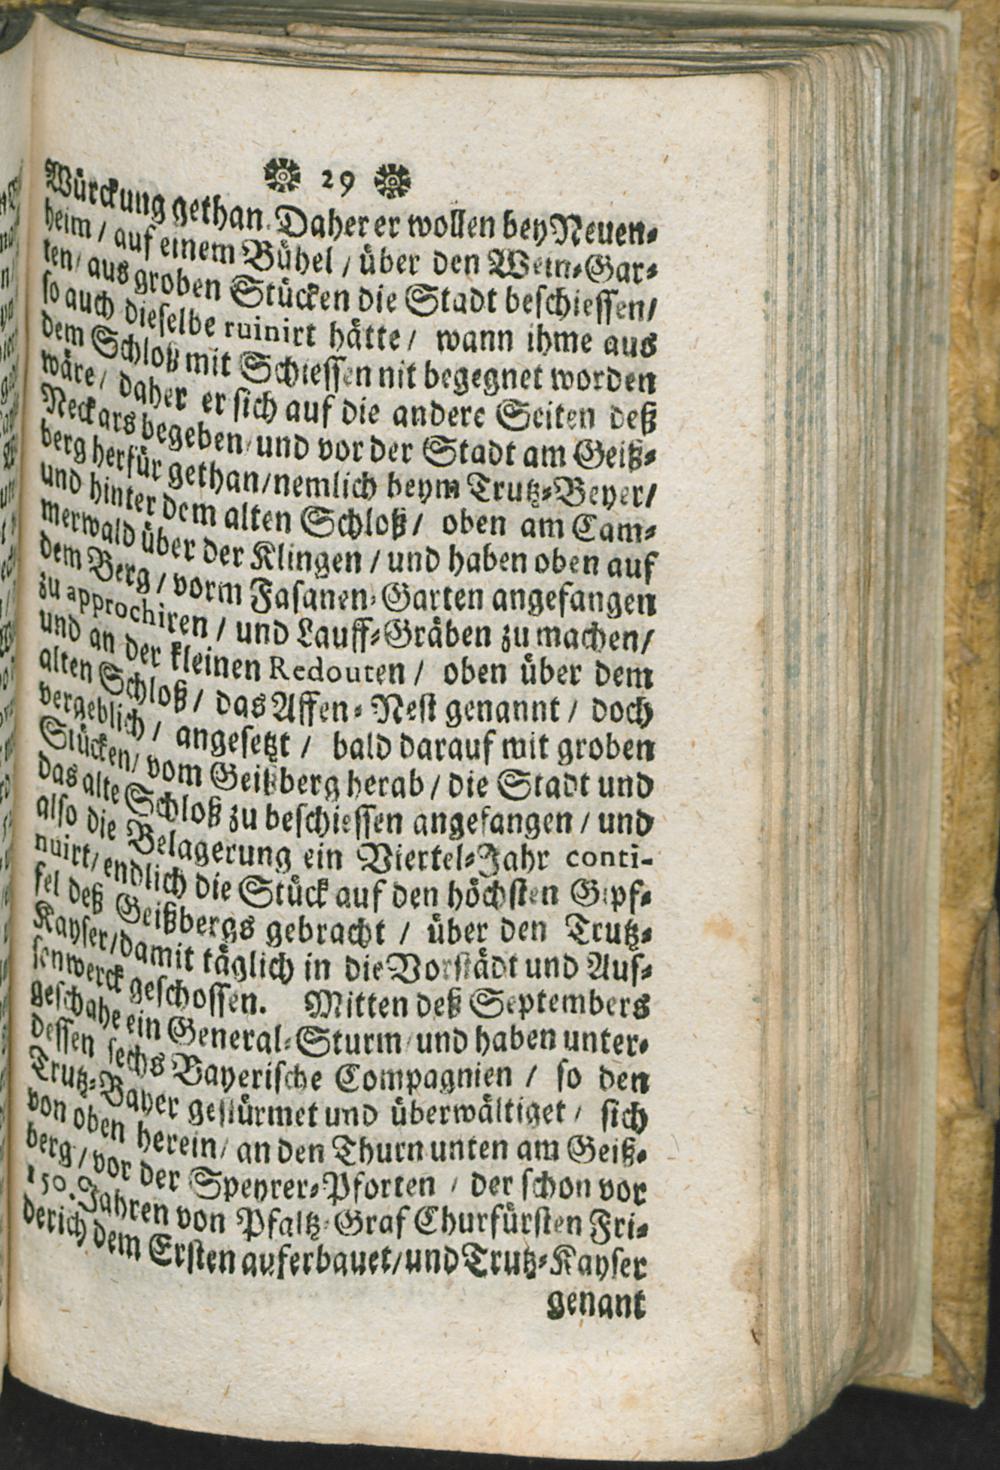 29
Würckung gethan. Daher er wollen bey Neuen-
heim / auf einem Bühel / über den Wein-Gar-
ten / aus groben Stücken die Stadt beschiessen /
so auch dieselbe ruinirt hätte / wann ihme aus
dem Schloß mit Schiessen nit begegnet worden
wäre / daher er sich auf die andere Seiten deß
Neckars begeben / und vor der Stadt am Geiß-
berg herfür gethan / nemlich beym Trutz-Beyer /
und hinter dem alten Schloß / oben am Cam-
merwald über der Klingen / und haben oben auf
dem Berg / vorm Fasanen-Garten angefangen
zu approchiren / und Lauff-Gräben zu machen /
und an der kleinen Redouten / oben über dem
alten Schloß / das Affen-Nest genannt / doch
vergeblich / angesetzt / bald darauf mit groben
Stücken / vom Geißberg herab / die Stadt und
das alte Schloß zu beschiessen angefangen / und
also die Belagerung ein Viertel-Jahr conti-
nuirt / endlich die Stück auf den höchsten Gipf-
fel deß Geißbergs gebracht / über den Trutz-
Kayser / damit täglich in die Vorstädt und Auf-
senwerck geschossen. Mitten deß Septembers
geschahe ein General-Sturm / und haben unter-
dessen sechs Bayerische Compagnien / so den
Trutz-Bayer gestürmet und überwältiget / sich
von oben herein / an den Thurn unten am Geiß-
berg / vor der Speyrer-Pforten / der schon vor
150. Jahren von Pfaltz-Graf Churfürsten Fri-
derich dem Ersten auferbauet / und Trutz-Kayser
genant